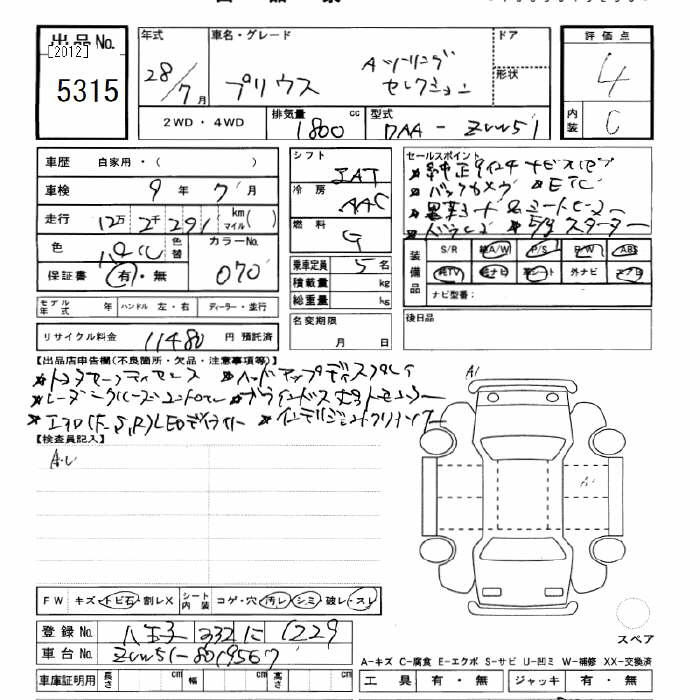 出品No.
[2012]
5315
年式 車名・グレード ドア 評価点
28/7月 プリウス Aツーリング セレクション 形状 4
2WD・4WD 排気量 1800 cc 型式 DAA-ZVW51 内装 C
車歴 自家用・( )
車検 9年7月
走行 12万2千291 km マイル( )
色 パール 色替 カラーNo. 070
保証書 有・無
モデル年式 年 ハンドル 左・右 ディーラー・並行
リサイクル料金 11480 円 預託済
シフト IAT
冷房 AAC
燃料 G
乗車定員 5名
積載量 kg
総重量 kg
名変期限 月 日
セールスポイント
★純正9インチナビフルセグ
★バックカメラ ★ETC
★黒革シート &シートヒーター
★ドラレコ ★E/gスターター
装備品 S/R 純A/W P/S P/W ABS
純TV 純ナビ 革シート 外ナビ エアB
ナビ型番:
後日品
【出品店申告欄(不良箇所・欠品・注意事項等)】
★トヨタセーフティセンス ★ヘッドアップディスプレイ
★レーダークルーズコントロール ★ブラインドスポットモニター
★エアロ(F,S,R)LEDデイライト ★インテリジェントクリアランスソナー
【検査員記入】
A・U
A1
A1
FW キズ・トビ石・割レX シート内装 コゲ・穴・汚レ・シミ・破レ・スレ
登録No. 八王子 332 に 1229
車台No. ZVW51-8019567
車庫証明用 長さ cm 幅 cm 高さ cm
スペア
A-キズ C-腐食 E-エクボ S-サビ U-凹ミ W-補修 XX-交換済
工具 有・無 ジャッキ 有・無